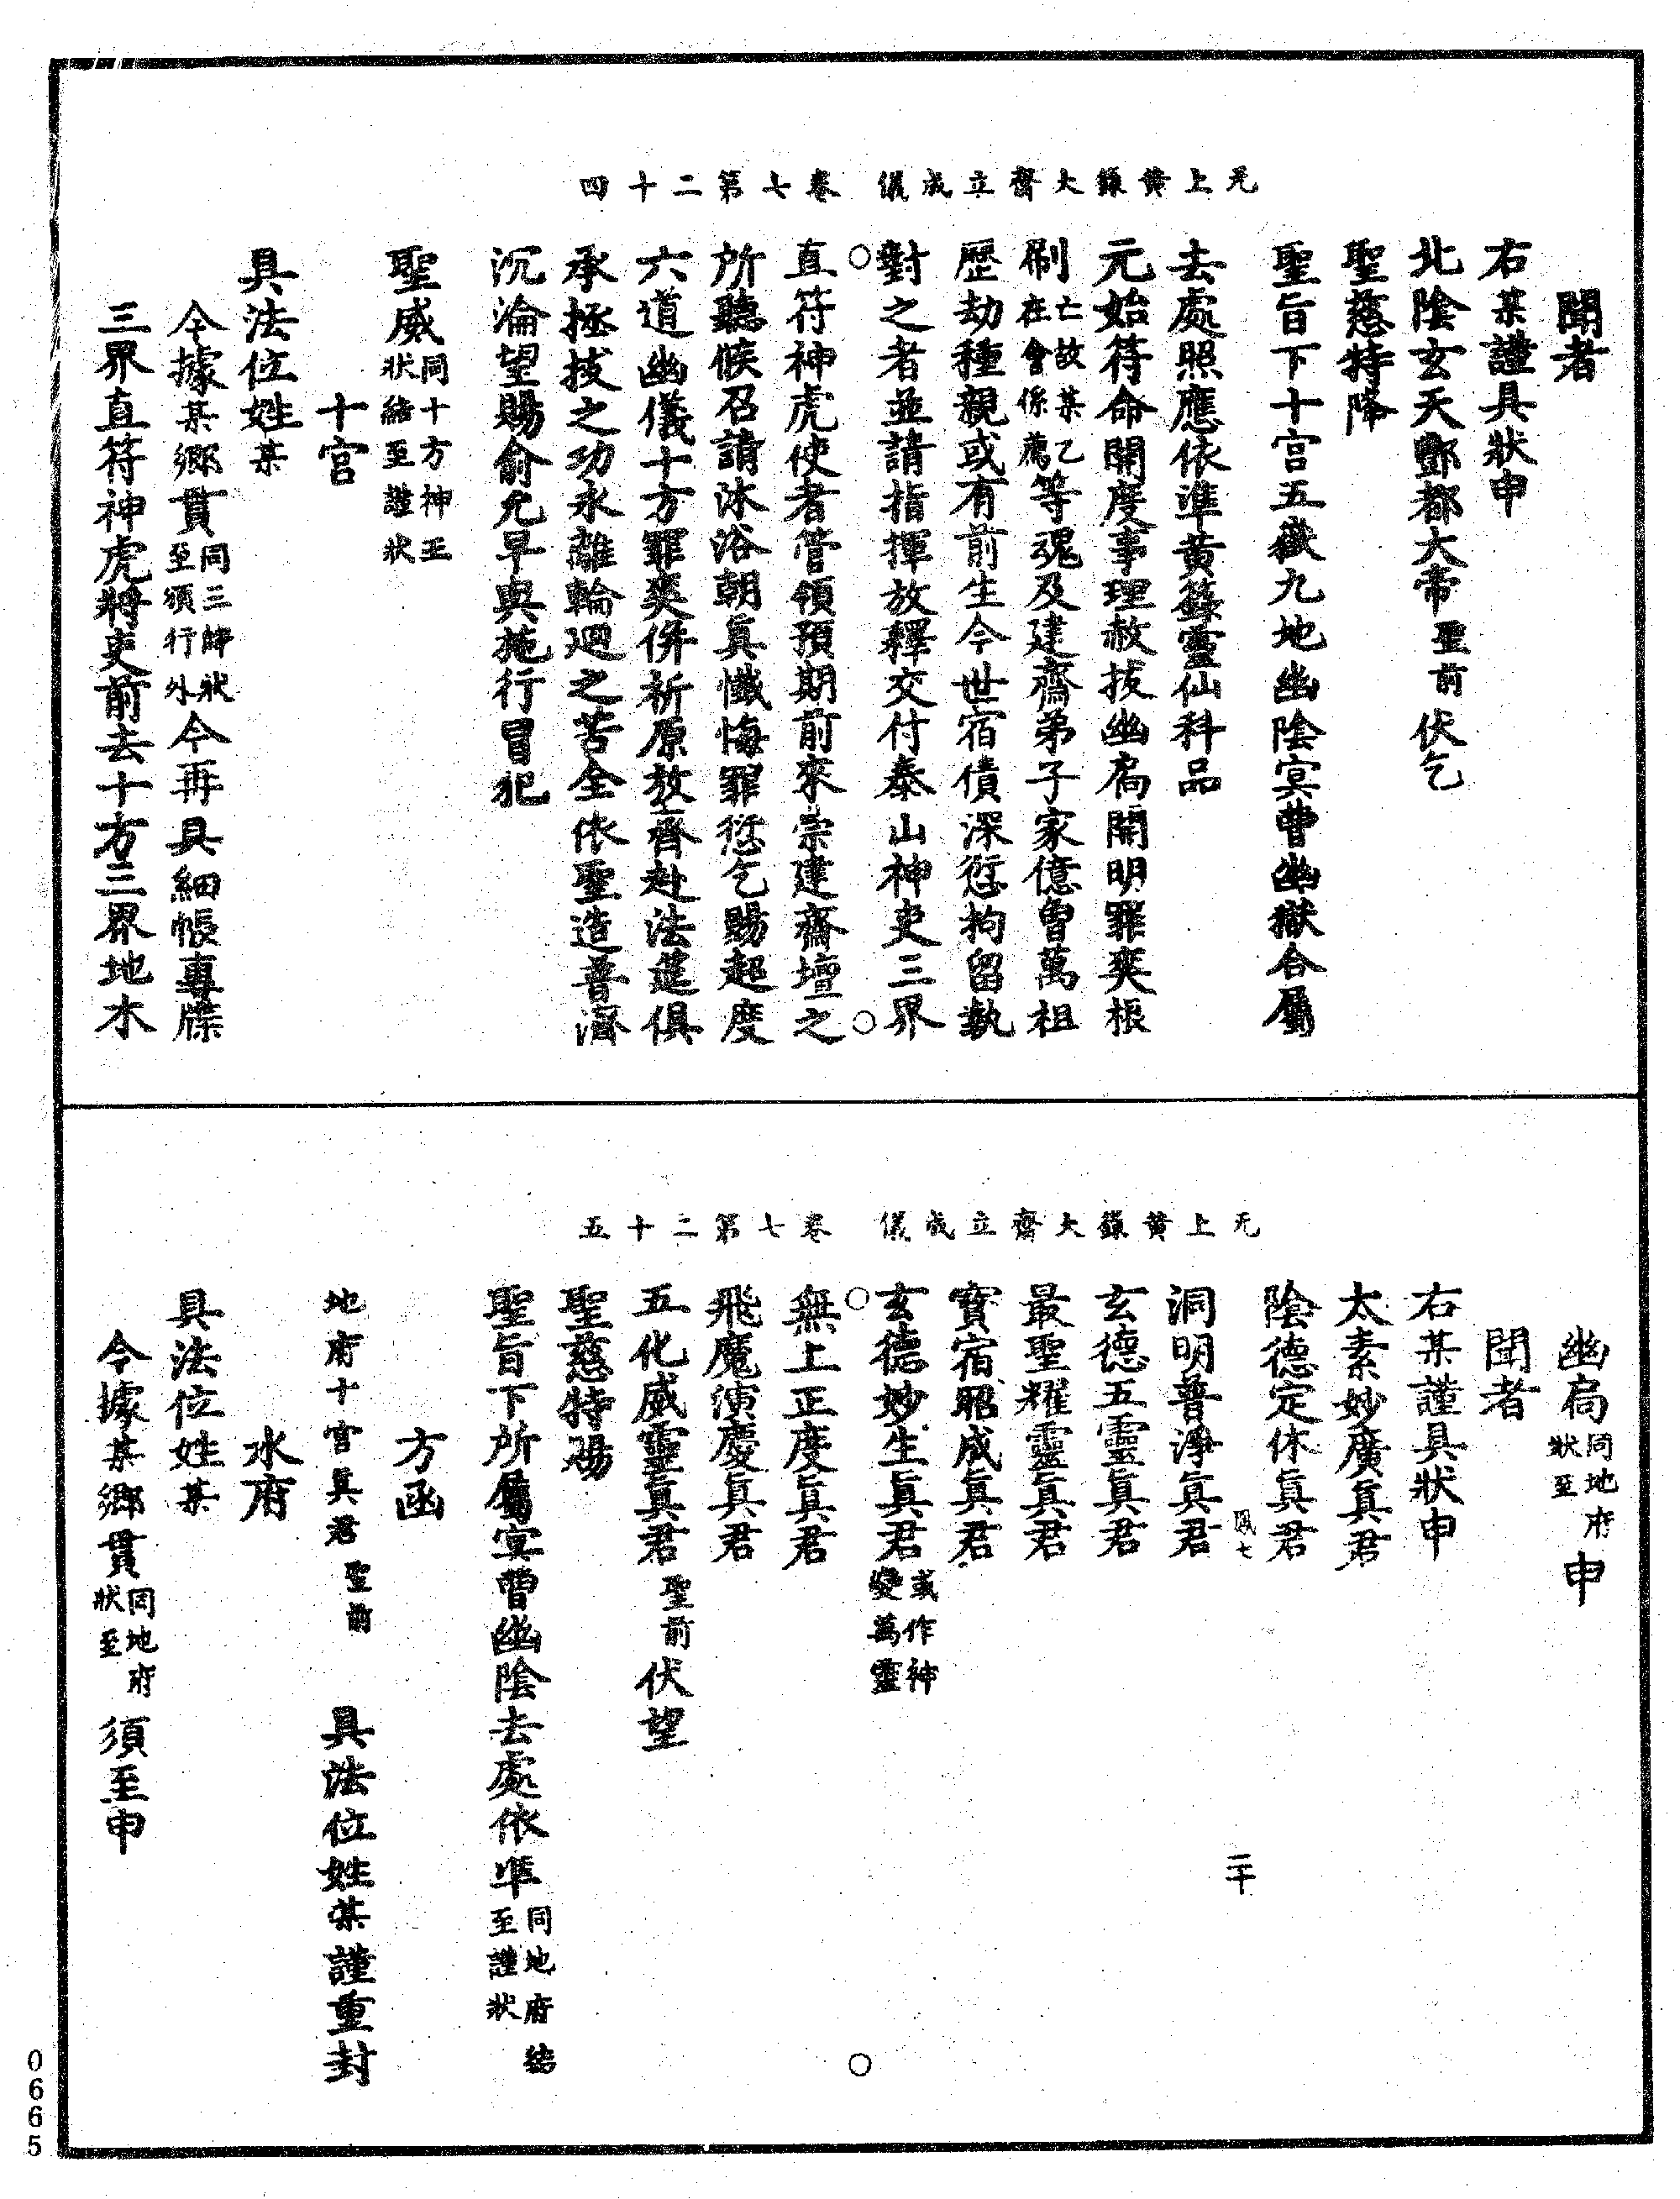 无上黃籙大齋立成儀 卷七第二十四
聞者
右某謹具狀申
北陰玄天酆都大帝聖前伏乞
聖慈特降
聖旨下十宮五嶽九地幽陰冥曹幽獄合屬
去處照應依準黃籙靈仙科品
元始符命開度事理赦拔幽扃開明罪爽根
刷亡故某乙等魂在會係薦及建齋弟子家億曾萬祖
歷劫種親或有前生今世宿債深愆拘留執
對之者並請指揮放釋交付泰山神吏三界
直符神虎使者管領預期前來崇建齋壇之
所聽候召請沐浴朝眞懺悔罪愆乞賜起度
六道幽儀十方罪爽併祈原赦齊赴法筵俱
承拯拔之功永離輪迴之苦全依聖造普濟
沉淪望賜俞允早與施行冒犯
聖威同十方神王狀結至謹狀
十宮
具法位姓某
今據某鄉貫同三師狀至頒行外今再具細帳專牒
三界直符神虎將吏前去十方三界地水
无上黃籙大齋立成儀 卷七第二十五
幽扃同地府狀至申
聞者
右某謹具狀申
太素妙廣眞君
陰德定休眞君
洞明普淨眞君
玄德五靈眞君
最聖耀靈眞君
寶宿昭成眞君
玄德妙生眞君或作神變萬靈
無上正度眞君
飛魔演慶眞君
五化威靈眞君聖前伏望
聖慈特賜
聖旨下所屬冥曹幽陰去處依準同地府結至謹狀
方函
地府十宮眞君聖前 具法位姓某謹重封
水府
具法位姓某
今據某鄉貫同地府狀至須至申
二十
0665